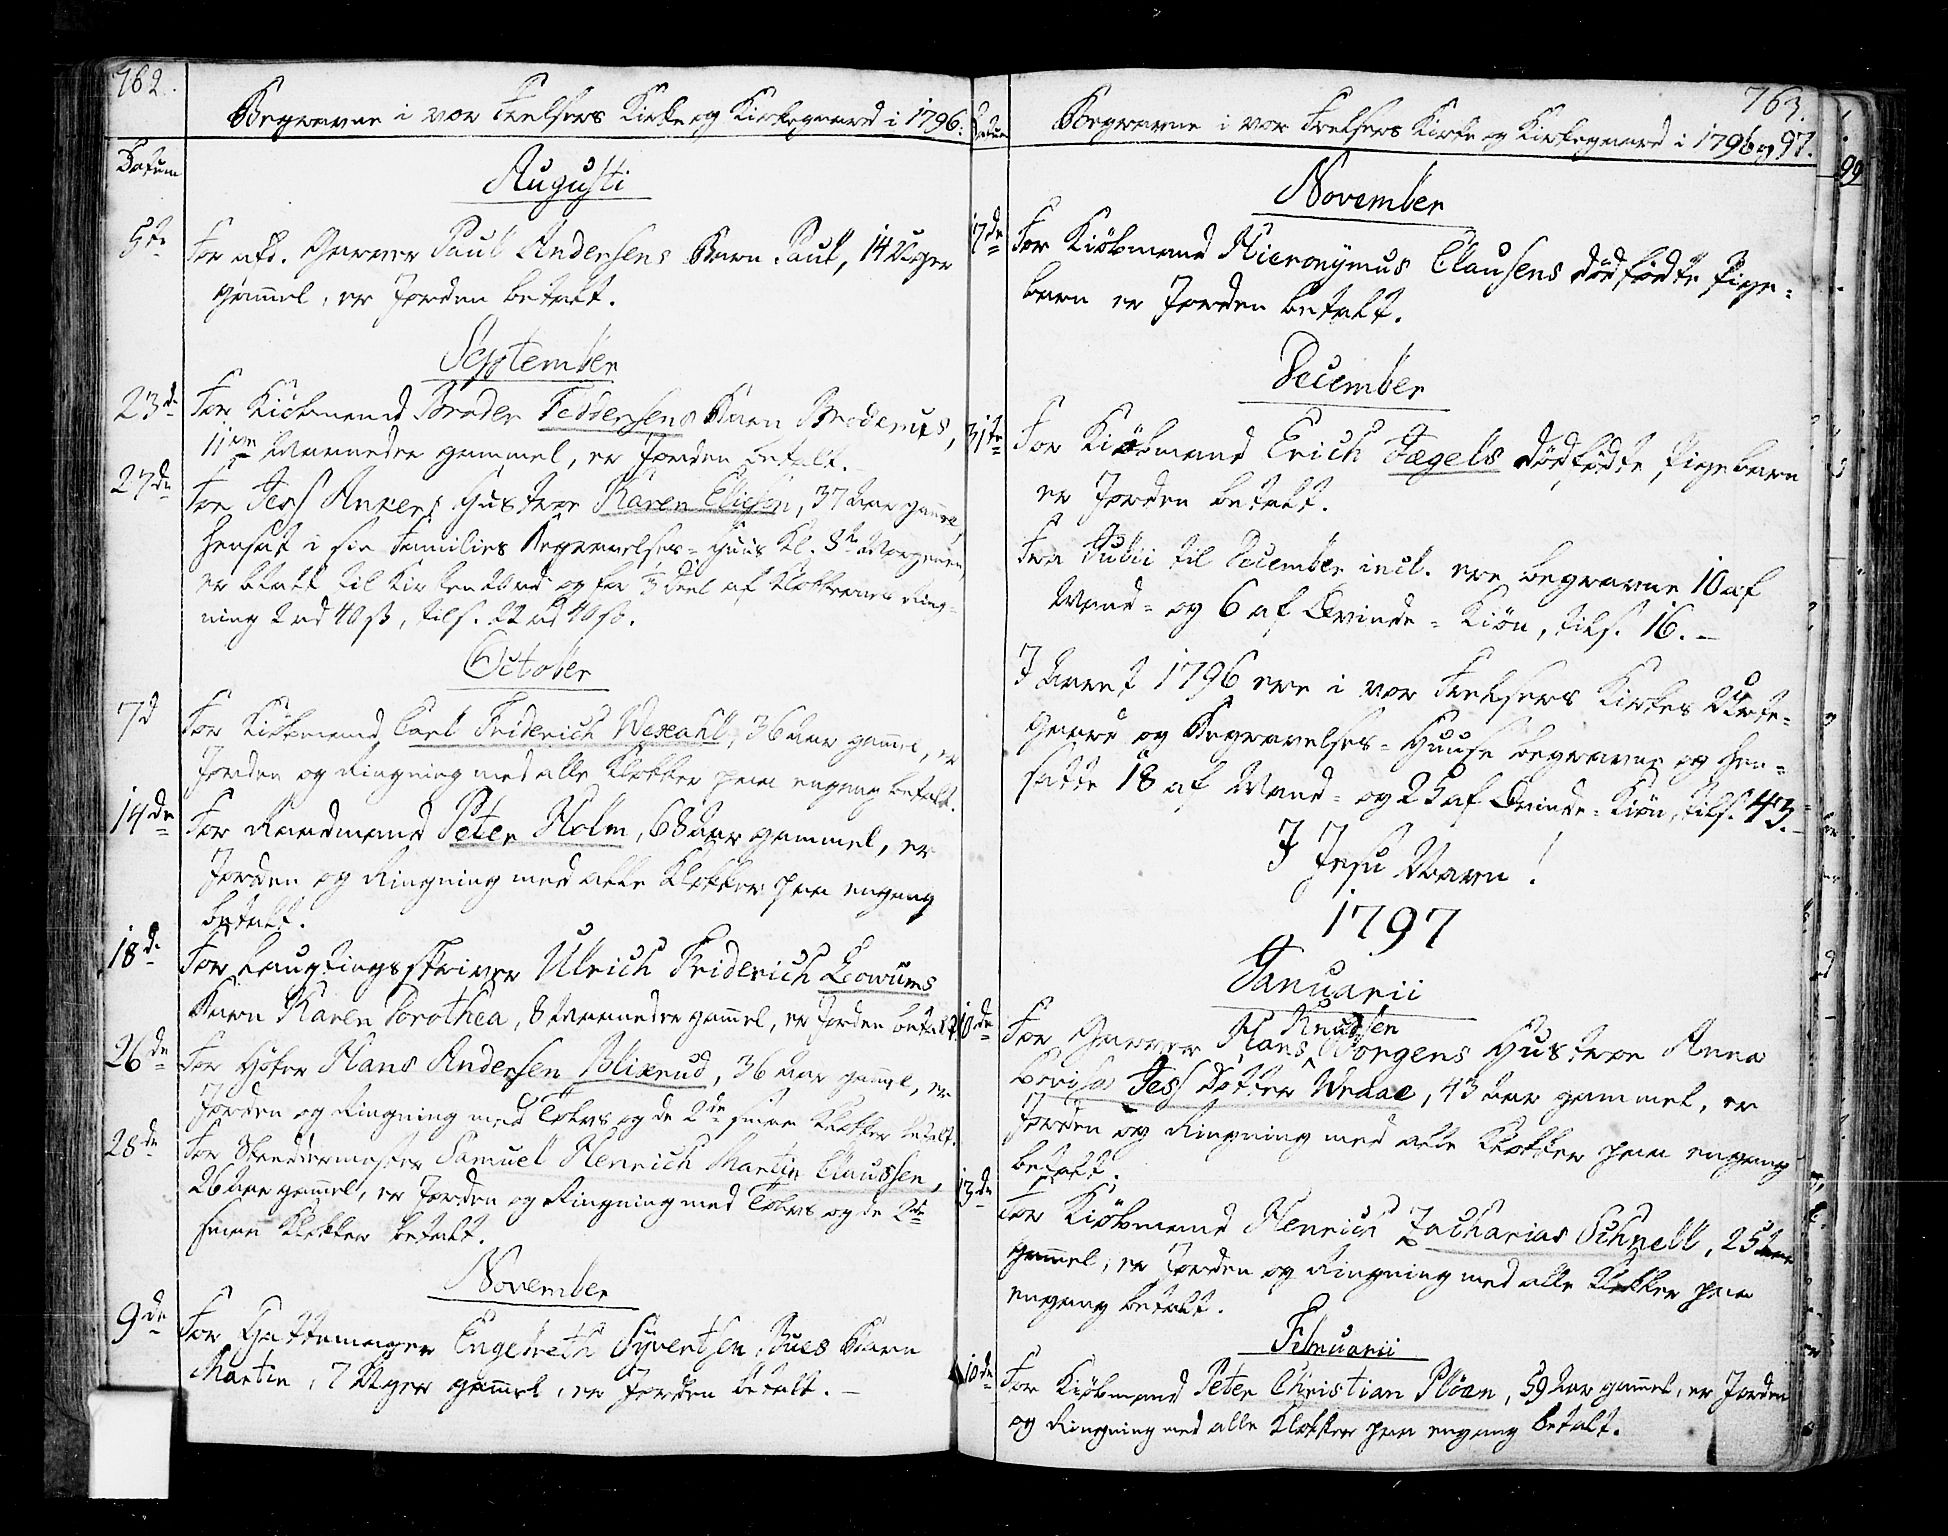 762.
Begravne i vor Frelsers Kirke og Kirkegaard i 1796.
Datum
Augusti
5te For afd. Garver Paul Andersens Barn Paul, 14 Uger
gam̄el, er Jorden betalt.
September
23de For Kiöbmand Broder Feddersens Barn Broderus,
11ve Maaneder gammel, er Jorden betalt.
27de For Jess Ankers Hustroe Karen Eliesen, 37 Aar gam̄el,
hensat i sin Families Begravelses-Huus Kl. 8te Morgenen,
er betalt til Kirken 20 rd og for 1/3 Deel af Klokkernes Ring-
ning 2 rd 40 ß, tils. 22 rd 40 ß.
October
7d For Kiöbmand Carl Friderich Wexahll, 36 Aar gam̄el, er
Jorden og Ringning med alle Klokker paa engang betalt.
14de For Raadmand Peter Holm, 68 Aar gammel, er
Jorden og Ringning med alle Klokker paa engang
betalt.
18de For Laugtingsskriver Ulrich Friderich Bowùms
Barn Karen Dorothea, 8 Maaneder gam̄el, er Jorden betalt.
26de For Höker Hans Andersen Blixrud, 36 Aar gam̄el, er
Jorden og Ringning med og de 2de smaa Klokker betalt.
28de For Samuel Henrich Martin Claussen,
26 Aar gam̄el, er Jorden og Ringning med og de 2de
smaa Klokker betalt.
November
9de For Hattemager Engebreth Syvertsen Bues Barn
Martin, 7 Uger gam̄el, er Jorden betalt. –
763.
Datum
Begravne i vor Frelsers Kirke og Kirkegaard i 1796 og 97.
November
17de For Kiöbmand Hieronymus Clausens dödfödte Pige-
barn er Jorden betalt.
December
31te For Kiöbmand Erich Jægels dödfödte Pigebarn
er Jorden betalt.
Fra Julii til December incl. ere begravne 10 af
Mand- og 6 af Qvinde-Kiön, tils. 16. –
I Aaret 1796 ere i vor Frelsers Kirkes Urte-
gaard og Begravelses-Huuse begravne og hen-
satte 18 af Mand- og 25 af Qvinde-Kiön, tils. 43. –
I Jesu Navn!
1797
Januarii
Knudsen
10de For Garver Hans Worgens Hustroe Anna
Jess Datter Wraae, 43 Aar gammel, er
Jorden og Ringning med alle Klokker paa engang
betalt.
13de For Kiöbmand Henrich Zacharias Schnell, 25 Aar
gammel, er Jorden og Ringning med alle Klokker paa
engang betalt.
Februarii
10de For Kiöbmand Peter Christian Plöen, 59 Aar gam̄el, er Jorden
og Ringning med alle Klokker paa engang betalt.
99